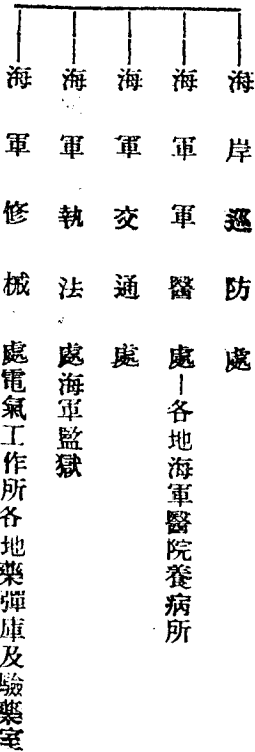 海岸巡防處
海軍軍醫處—各地海軍醫院養病所
海軍交通處
海軍執法處海軍監獄
海軍修械處電氣工作所各地藥彈庫及驗藥室